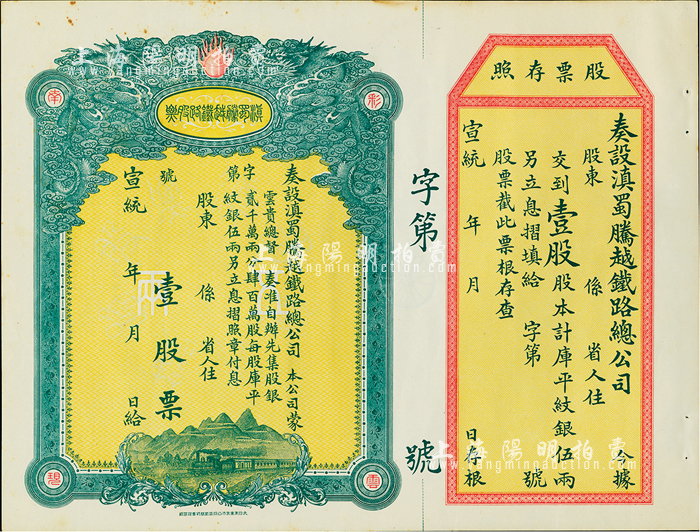 股票存照
奏設滇蜀騰越鐵路總公司 今據
股東 係 省人住
交到壹股股本計庫平紋銀伍兩
另立息摺填給 字第 號
股票截此票根存查
宣統 年 月 日存根
字第 號
滇蜀騰越鐵路股票
彩
南
雲
奏設滇蜀騰越鐵路總公司 本公司蒙
雲貴總督 奏准自辦先集股銀
貳千萬兩分肆百萬股每股庫平
紋銀伍兩另立息摺照章付息
字第 號
股東 係 省人住
壹股票
宣統 年 月 日給
伍
兩
上海陽明拍賣
www.yangmingauction.com
上海陽明拍賣
www.yangmingauction.com
上海陽明拍賣
www.yangmingauction.com